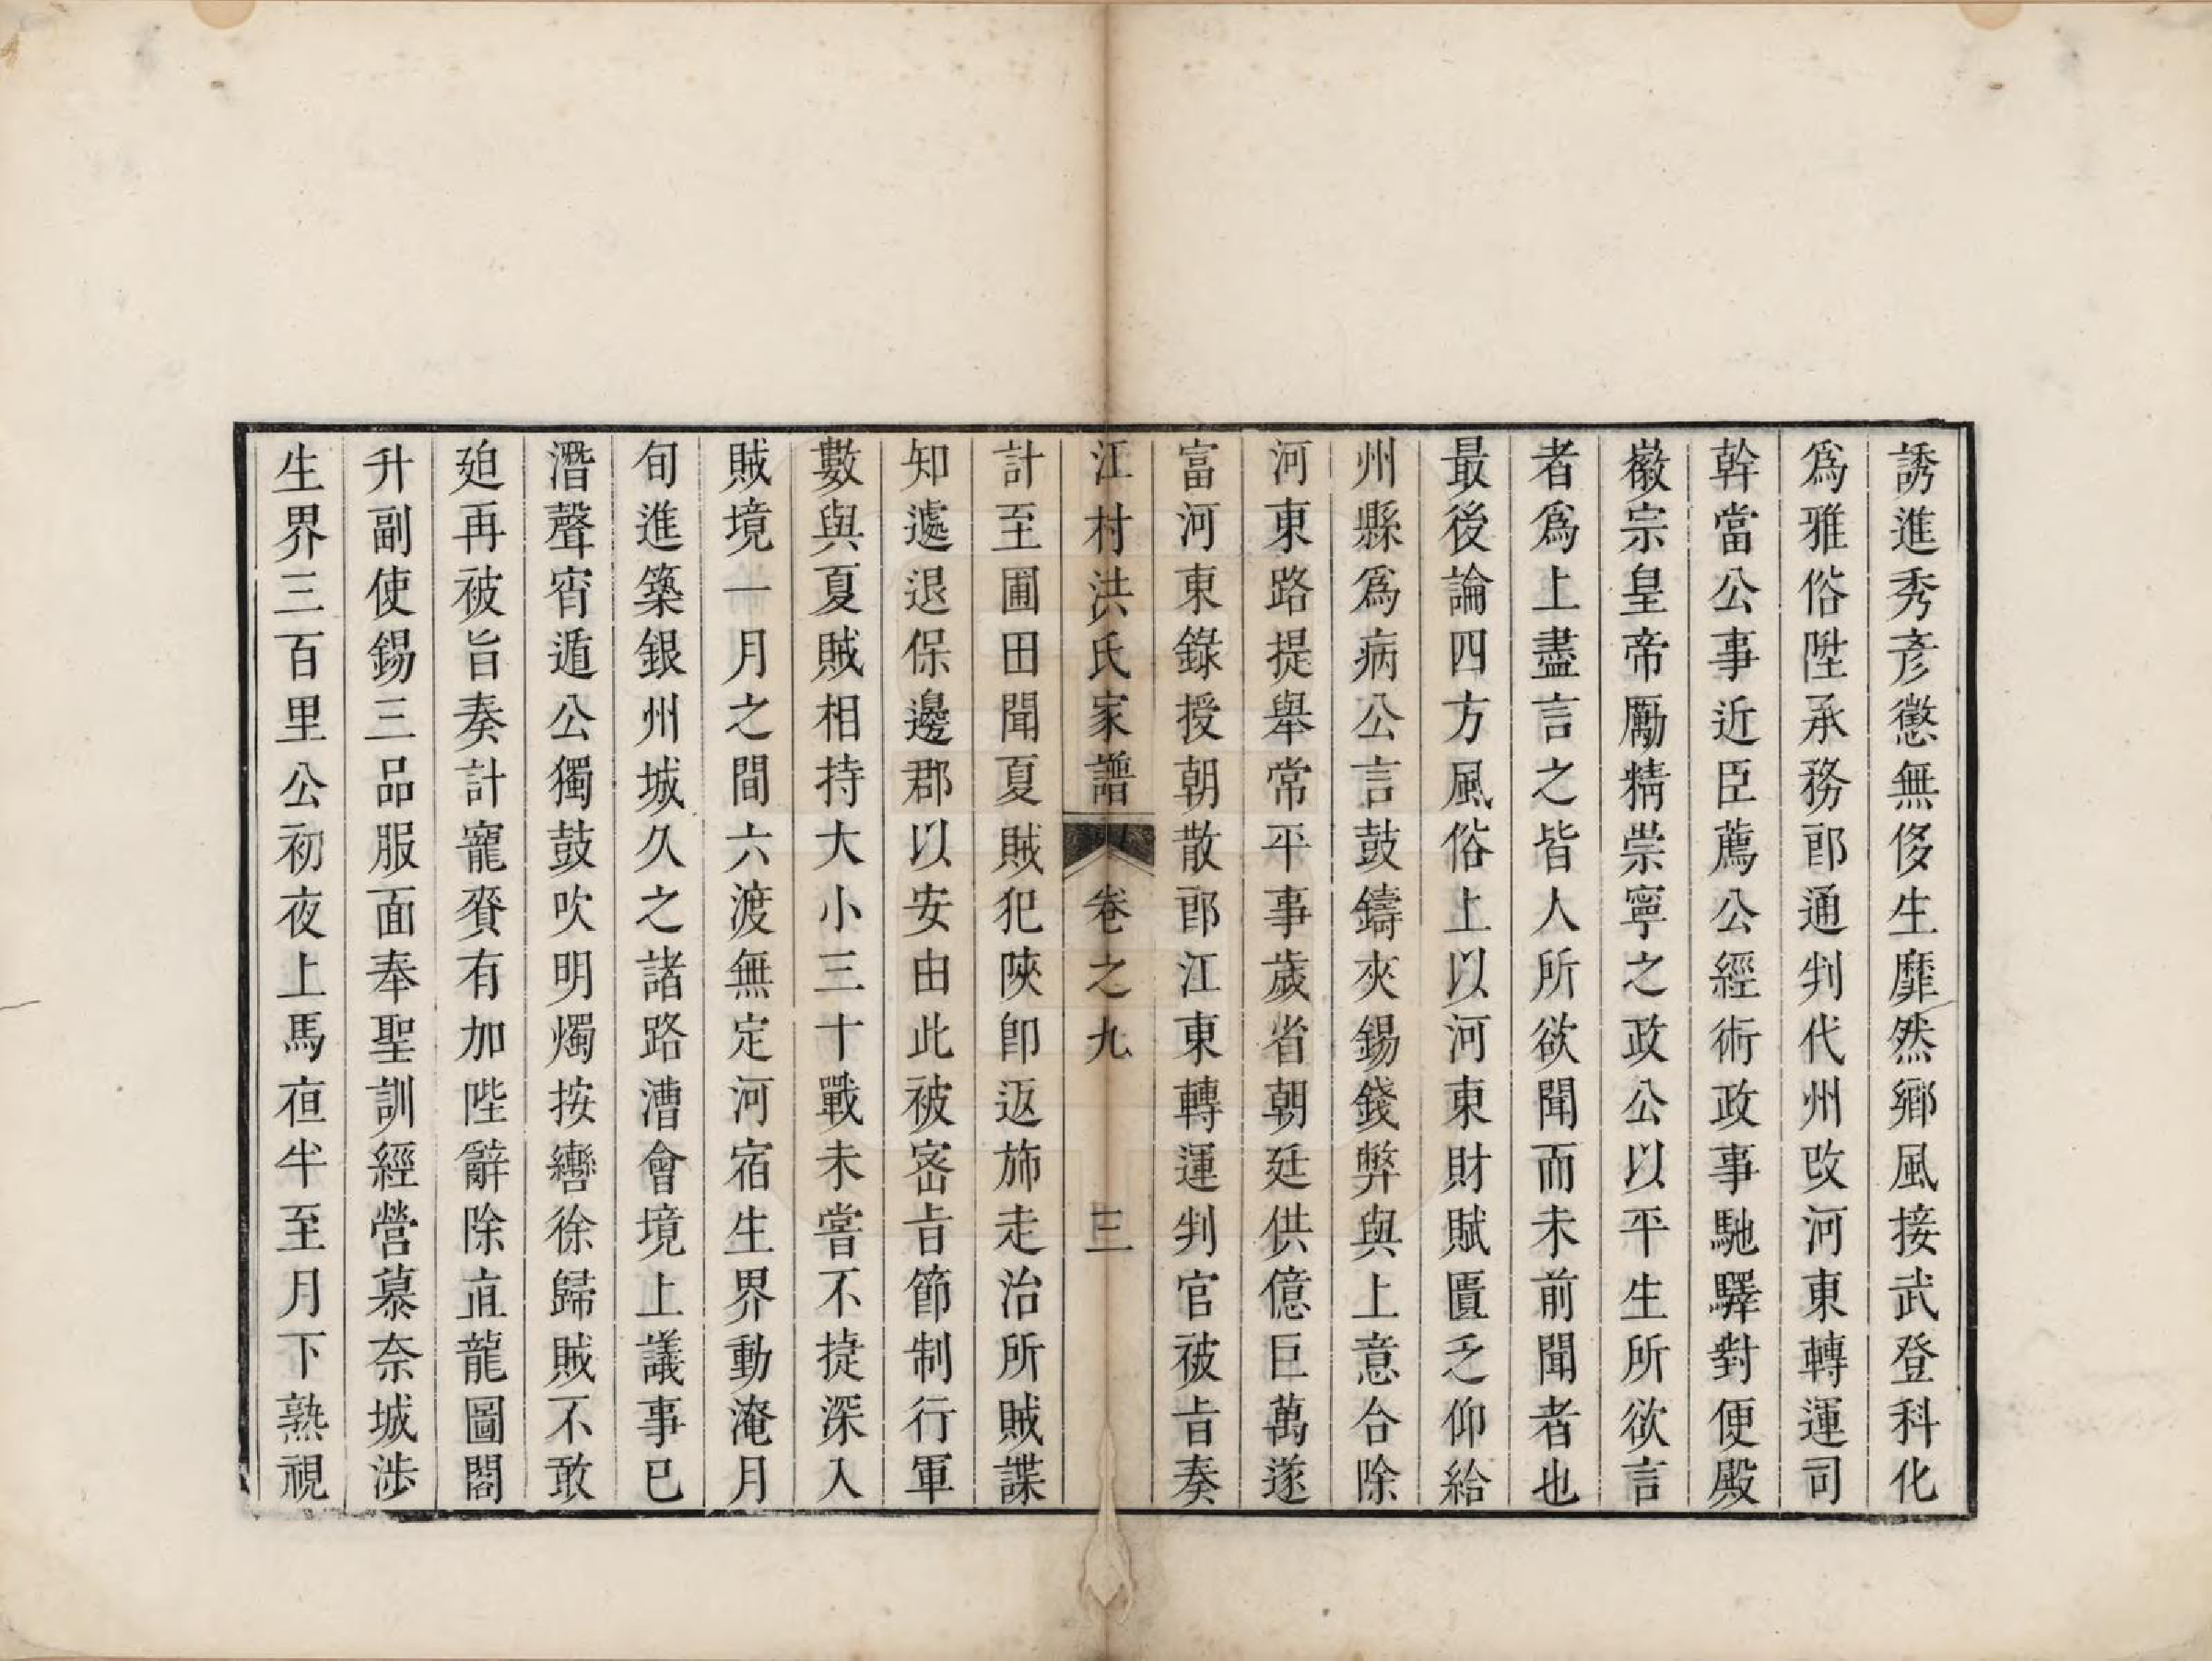 誘進秀彥懲無侈生靡然鄉風接武登科化
爲雅俗陞承務郎通判代州改河東轉運司
幹當公事近臣薦公經術政事馳驛對便殿
徽宗皇帝勵精崇寧之政公以平生所欲言
者爲上盡言之皆人所欲聞而未前聞者也
最後論四方風俗上以河東財賦匱乏仰給
州縣爲病公言鼓鑄夾錫錢弊與上意合除
河東路提舉常平事歲省朝廷供億巨萬遂
富河東錄授朝散郎江東轉運判官被旨奏
江村洪氏家譜 卷之九 三
計至圃田聞夏賊犯陝卽返斾走治所賊諜
知遽退保邊郡以安由此被宻旨節制行軍
數與夏賊相持大小三十戰未嘗不㨗深入
賊境一月之間六渡無定河宿生界動淹月
旬進築銀州城久之諸路漕會境上議事已
潛聲宵遁公獨鼓吹明燭按轡徐歸賊不敢
廹再被旨奏計寵賚有加陛辭除直龍圖閣
升副使錫三品服面奉聖訓經營慕奈城涉
生界三百里公初夜上馬夜半至月下熟視